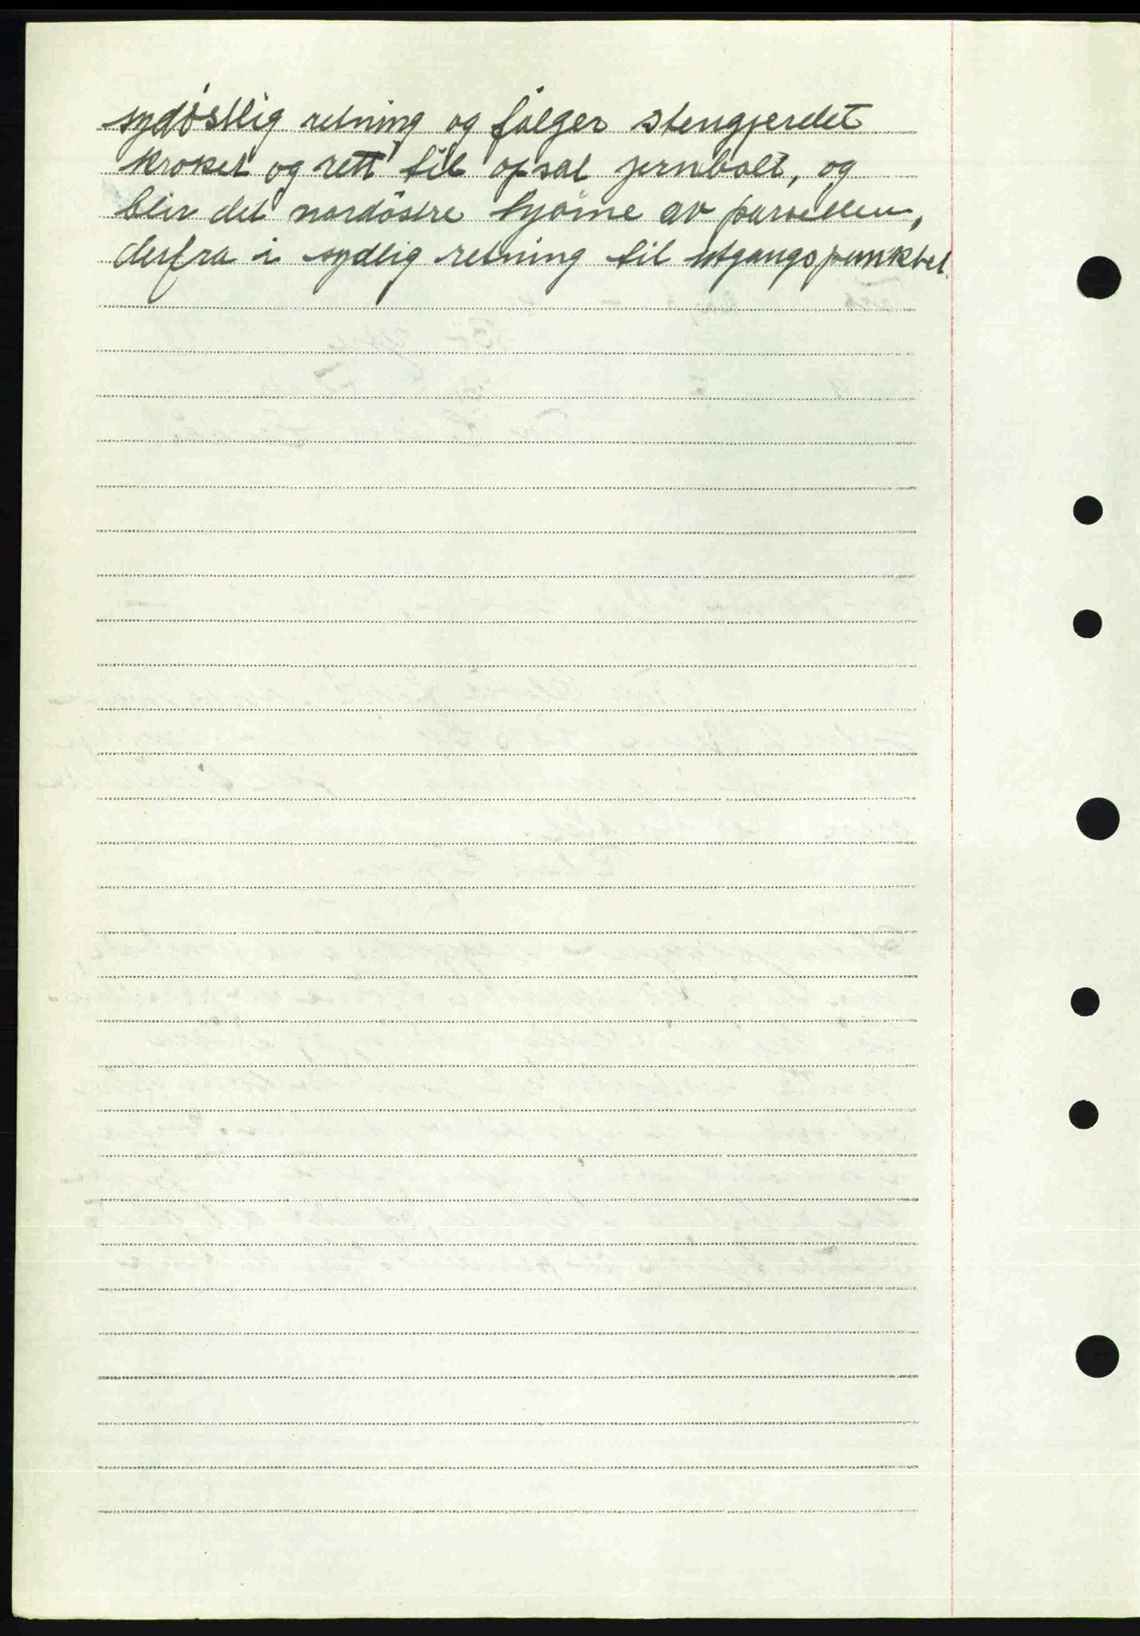 sydöstlig retning og fölger stengjerdet
kroket og rett til opsat jernbolt, og
blir det nordöstre hjörne av parsellen,
derfra i sydlig retning til utgangspunktet.